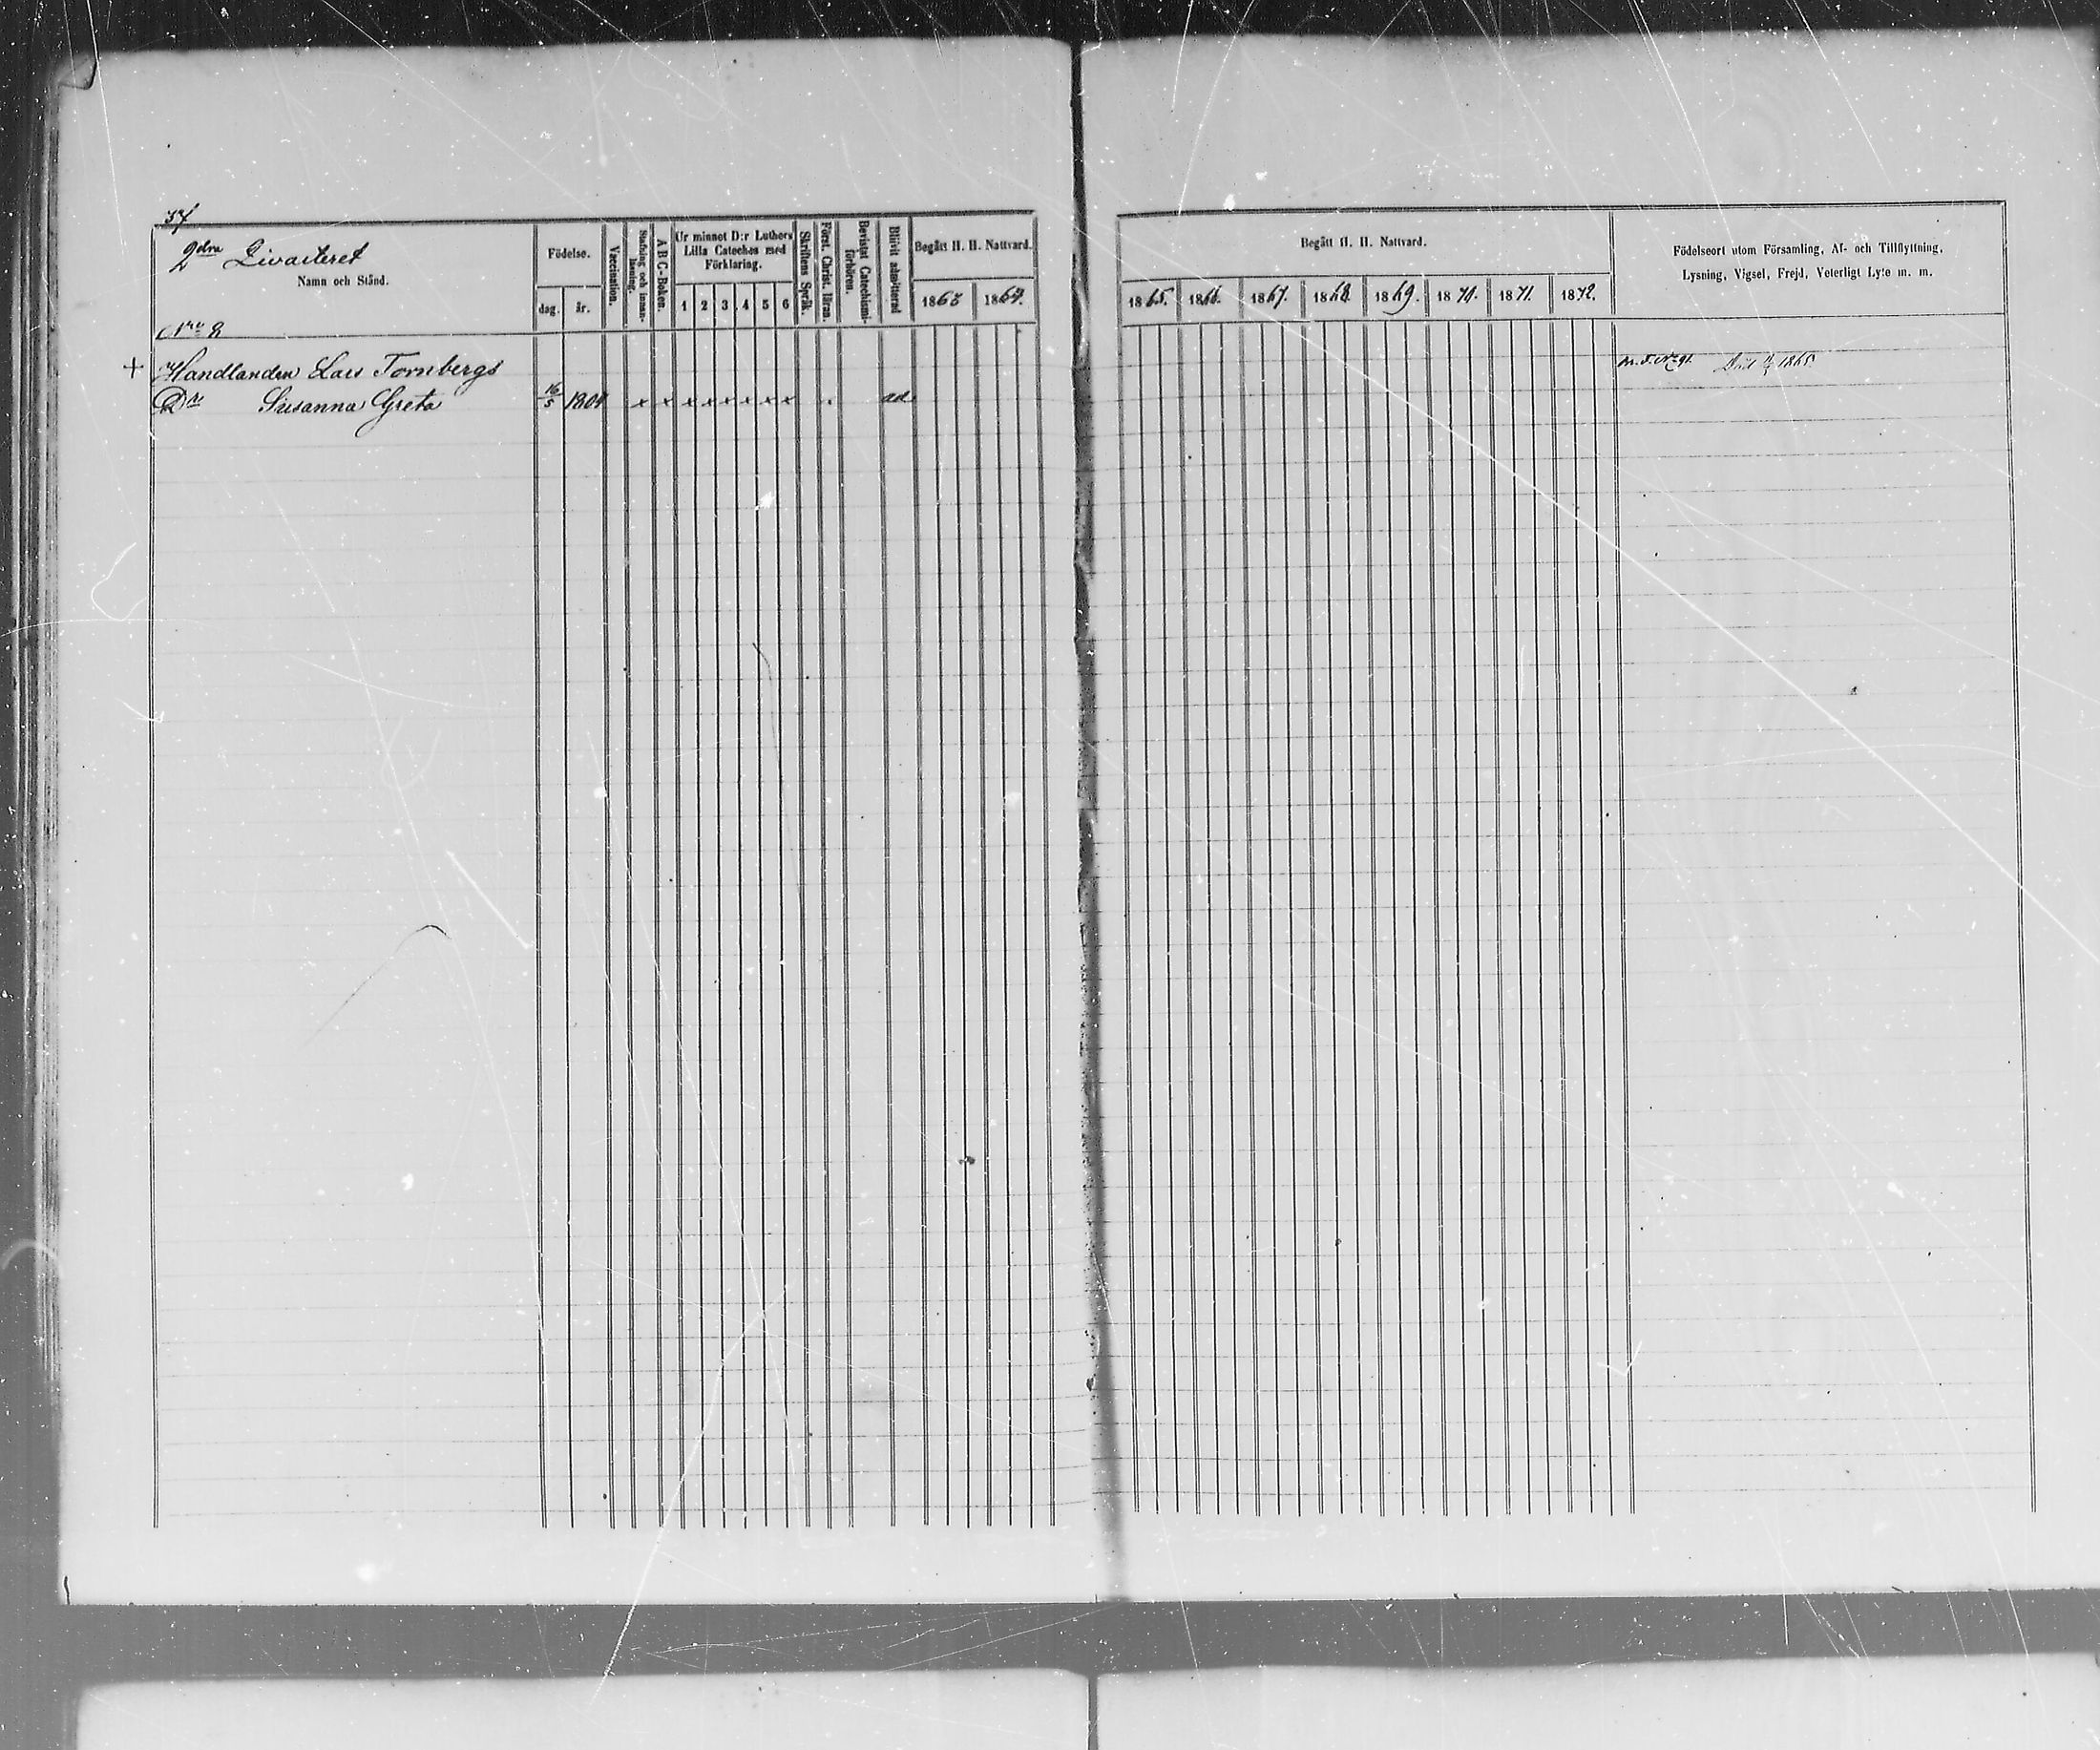 34
2dra Qvarteret
Namn och Stånd.
Födelse.
dag. år.
Vaccination.
Stafning och innanläsning.
A B C-Boken.
Ur minnet D:r Luthers Lilla Cateches med Förklaring.
1 2 3 4 5 6
Skriftens Språk.
Först. Christ. läran.
Bevistat Catechismiförhören.
Blifvit admitterad
Begått H. H. Nattvard.
1863 1864.
Begått H. H. Nattvard.
1865. 1866. 1867. 1868. 1869. 1870. 1871. 1872.
Födelseort utom Församling, Af- och Tillflyttning,
Lysning, Vigsel, Frejd, Veterligt Lyte m. m.
Nro 2
+ Handlanden Lars Tornbergs
Dr Susanna Greta 16/5 1804 x x x x x x x x ad
1865